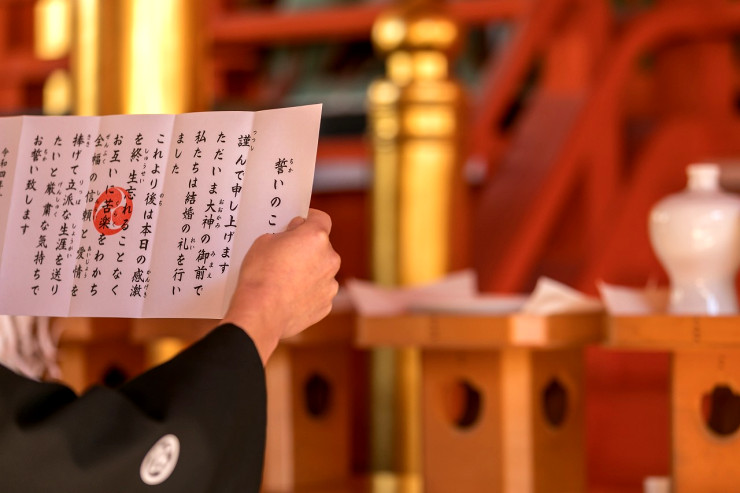 誓いのこ
謹んで申し上げます
ただいま大神の御前で
私たちは結婚の礼を行い
ました
これより後は本日の感激
を終生忘れることなく
お互いに苦楽をわかち
全幅の信頼と愛情を
捧げて立派な生涯を送り
たいと厳粛な気持ちで
お誓い致します
令和四年